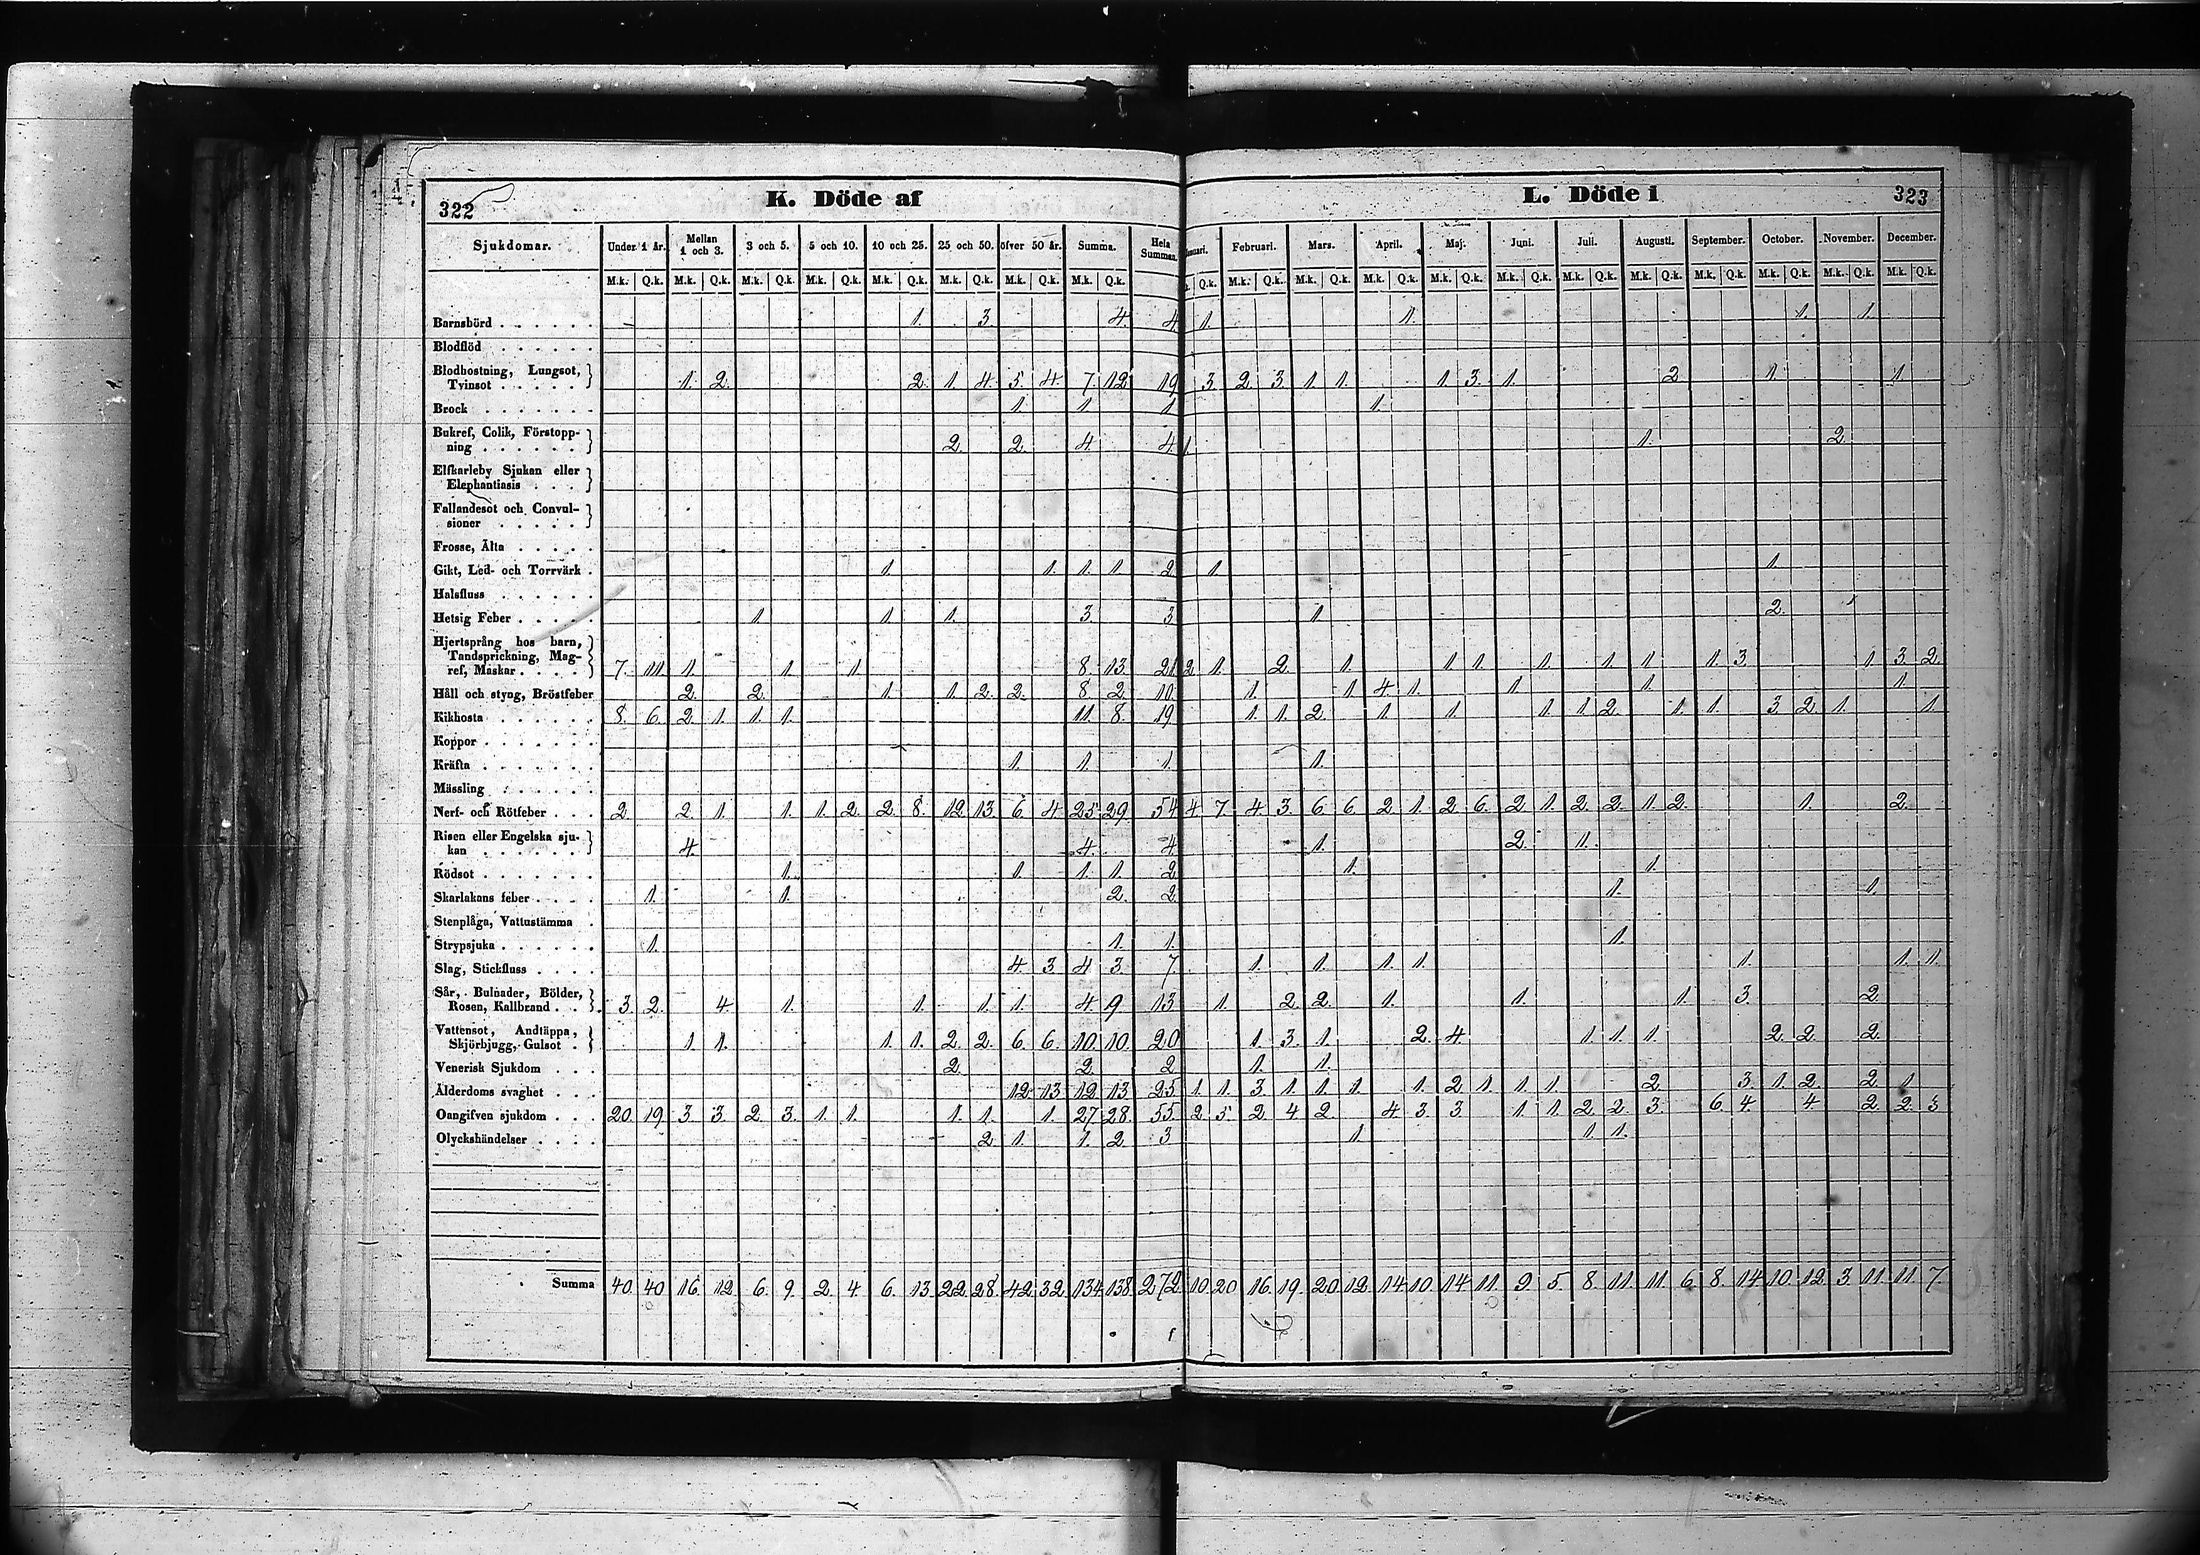 322 K. Döde af
Sjukdomar. Under 1 år. Mellan 1 och 3. 3 och 5. 5 och 10. 10 och 25. 25 och 50. öfver 50 år. Summa. Hela Summan.
M.k. Q.k. M.k. Q.k. M.k. Q.k. M.k. Q.k. M.k. Q.k. M.k. Q.k. M.k. Q.k. M.k. Q.k.
Barnsbörd 1. 3. 4. 4.
Blodflöd
Blodhostning, Lungsot,
Tvinsot 1. 2. 2. 1. 4. 5. 4. 7. 12. 19.
Brock 1. 1. 1.
Bukref, Colik, Förstopp-
ning 2. 2. 4. 4.
Elfkarleby Sjukan eller
Elephantiasis
Fallandesot och Convul-
sioner
Frosse, Älta
Gikt, Led- och Torrvärk 1. 1. 1. 1. 2.
Halsfluss
Hetsig Feber 1. 1. 1. 3. 3.
Hjertsprång hos barn,
Tandsprickning, Mag-
ref, Maskar 7. 11. 1. 1. 1. 8. 13. 21.
Håll och styng, Bröstfeber 2. 2. 1. 1. 2. 2. 8. 2. 10.
Kikhosta 8. 6. 2. 1. 1. 1. 11. 8. 19.
Koppor
Kräfta 1. 1. 1.
Mässling
Nerf- och Rötfeber 2. 2. 1. 1. 1. 2. 2. 8. 12. 13. 6. 4. 25. 29. 54
Risen eller Engelska sju-
kan 4. 4. 4.
Rödsot 1. 1. 1. 1. 2.
Skarlakans feber 1. 1. 2. 2.
Stenplåga, Vattustämma
Strypsjuka 1. 1. 1.
Slag, Stickfluss 4. 3. 4. 3. 7.
Sår, Bulnader, Bölder,
Rosen, Kallbrand 3. 2. 4. 1. 1. 1. 1. 4. 9. 13
Vattensot, Andtäppa,
Skjörbjugg, Gulsot 1. 1. 1. 1. 2. 2. 6. 6. 10. 10. 20
Venerisk Sjukdom 2. 2. 2
Ålderdoms svaghet 12. 13. 12. 13. 25
Oangifven sjukdom 20. 19. 3. 3. 2. 3. 1. 1. 1. 1. 1. 27. 28. 55.
Olyckshändelser 2. 1. 1. 2. 3
Summa 40. 40 16. 12 6. 9. 2. 4. 6. 13. 22. 28. 42. 32. 134. 138. 272.
L. Döde i 323
Februari. Mars. April. Maj. Juni. Juli. Augusti. September. October. November. December.
Q.k. M.k. Q.k. M.k. Q.k. M.k. Q.k. M.k. Q.k. M.k. Q.k. M.k. Q.k. M.k. Q.k. M.k. Q.k. M.k. Q.k. M.k. Q.k. M.k. Q.k.
1. 1. 1. 1.
3. 2. 3. 1. 1. 1. 3. 1. 2 1. 1.
1.
1. 1. 2.
1. 1.
1. 2.
2. 1. 2. 1. 1. 1. 1. 1. 1. 1. 3. 1. 3. 2.
1. 1. 4. 1. 1. 1. 1.
1. 1. 2. 1. 1. 1. 1. 2. 1. 1. 3. 2. 1. 1.
1.
4. 7. 4. 3. 6. 6. 2. 1. 2. 6. 2. 1. 2. 2. 1. 2. 1. 2.
1. 2. 1.
1. 1.
1. 1.
1.
1. 1. 1. 1. 1. 1. 1.
1. 2. 2. 1. 1. 1. 3. 2
1. 3. 1. 2. 4 1. 1. 1. 2. 2. 2.
1. 1.
1. 1. 3. 1. 1. 1. 1. 2. 1. 1. 1. 2. 3. 1. 2. 2. 1.
2. 5. 2. 4. 2. 4. 3. 3. 1. 1. 2. 2. 3. 6. 4. 4. 2. 2. 3
1. 1. 1.
10. 20 16. 19. 20. 12. 14. 10. 14. 11. 9. 5. 8. 11. 11. 6. 8. 14. 10. 12. 3. 11. 11. 7.